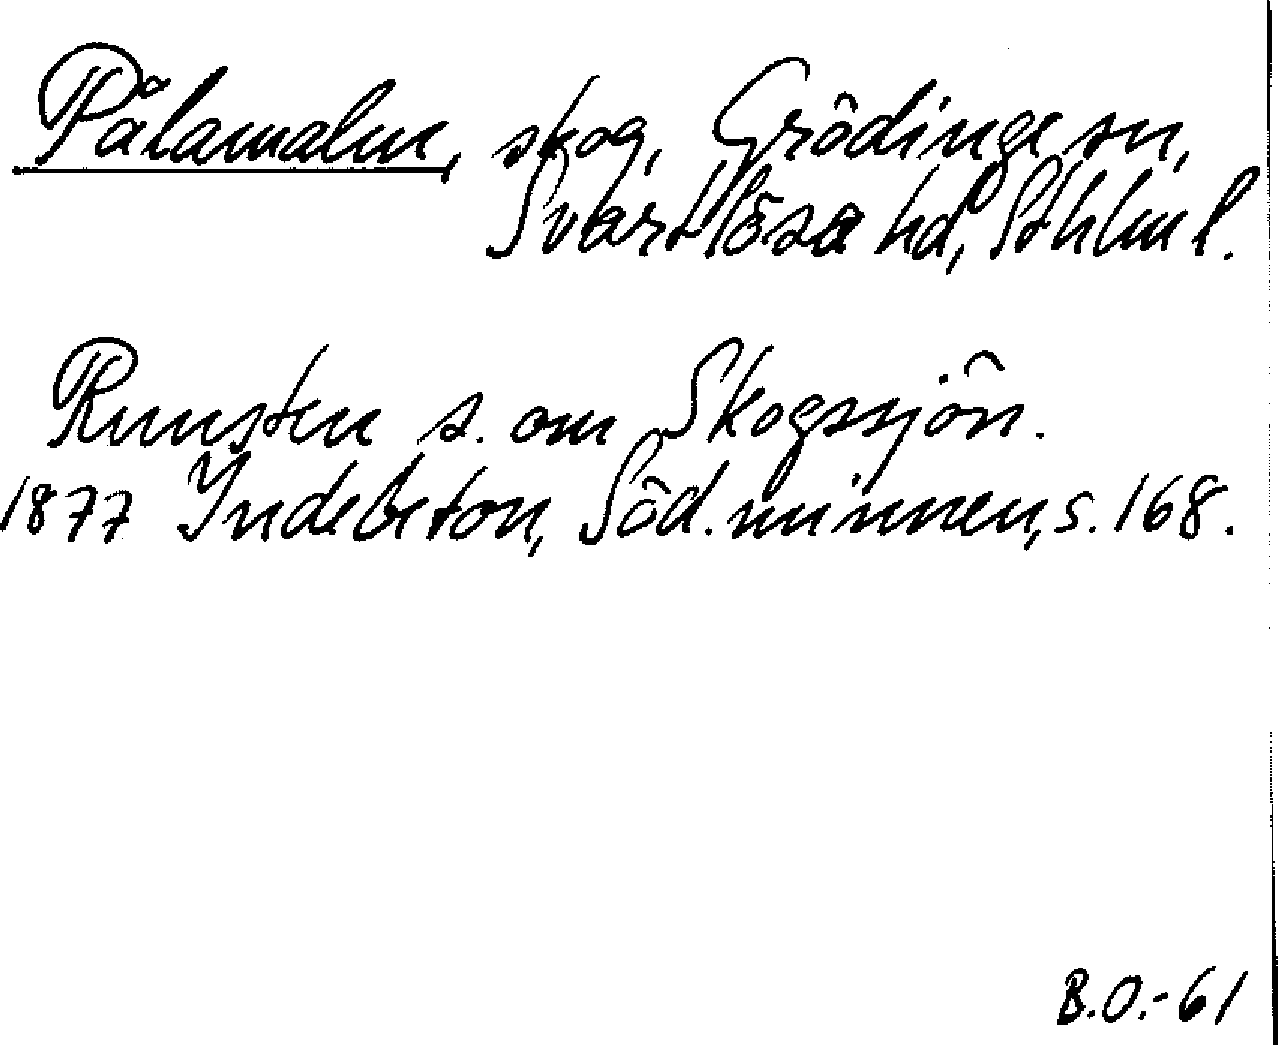 Pålamalm, skog, Grödinge sn,
Svartlösa hd, Sthlm l.
Runsten s. om Skogssjön.
1877 Indebetou, Söd. minnen, s. 168.
B.O.-61